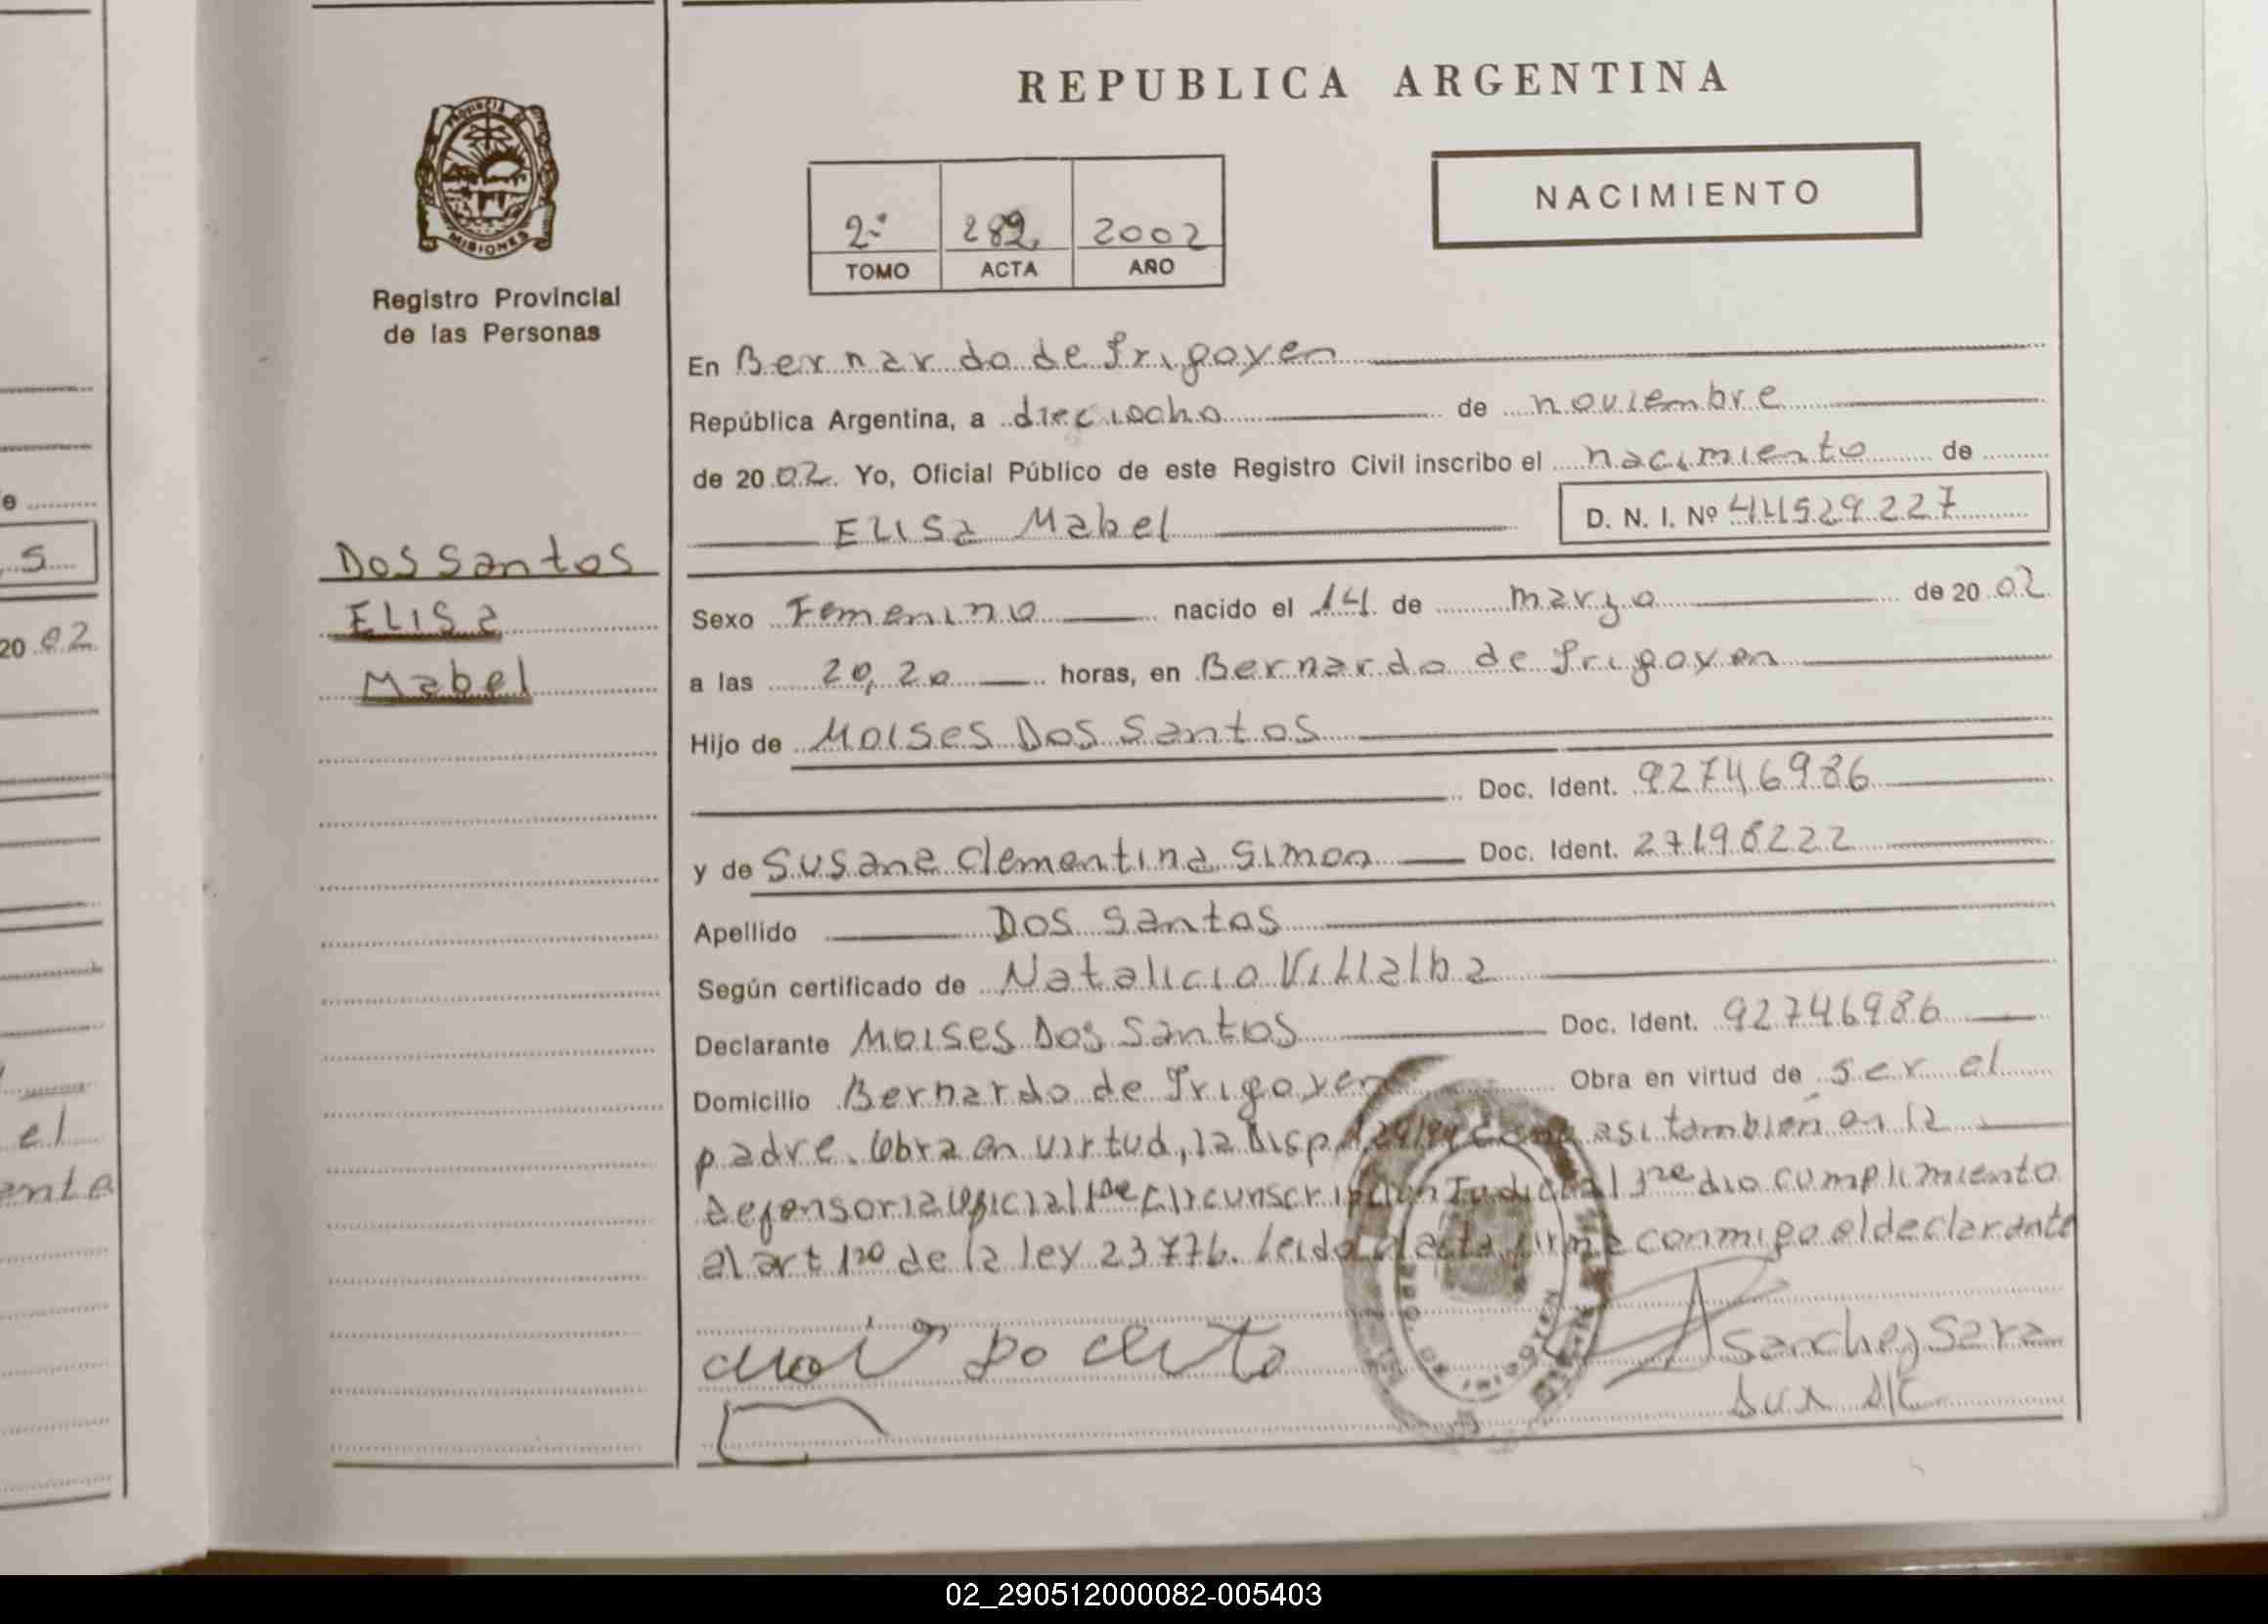 REPUBLICA ARGENTINA
PROVINCIA DE
MISIONES
Registro Provincial
de las Personas
2º 282 2002
TOMO ACTA AÑO
NACIMIENTO
En Bernardo de Irigoyen
República Argentina, a dieciocho de noviembre
de 2002 Yo, Oficial Público de este Registro Civil inscribo el nacimiento de
ELISa Mabel D. N. I. Nº 44529227
Dos Santos
ELISa
Mabel
Sexo Femenino nacido el 14 de marzo de 2002
a las 20,20 horas, en Bernardo de Irigoyen
Hijo de Moises Dos Santos
Doc. Ident. 92746986
y de Susana Clementina Simon Doc. Ident. 27198222
Apellido Dos Santos
Según certificado de Natalicio Villalba
Declarante Moises Dos Santos Doc. Ident. 92746986
Domicilio Bernardo de Irigoyen Obra en virtud de ser el
padre. Obra en virtud, la Disp asi tambien en la
Defensoria Oficial 1ra Circunscripción Judicial dio cumplimiento
al art 1ro de la ley 23776. Leida el acta, firma conmigo el declarante
Sanchez Sara
02
el
5
20 02
02_290512000082-005403